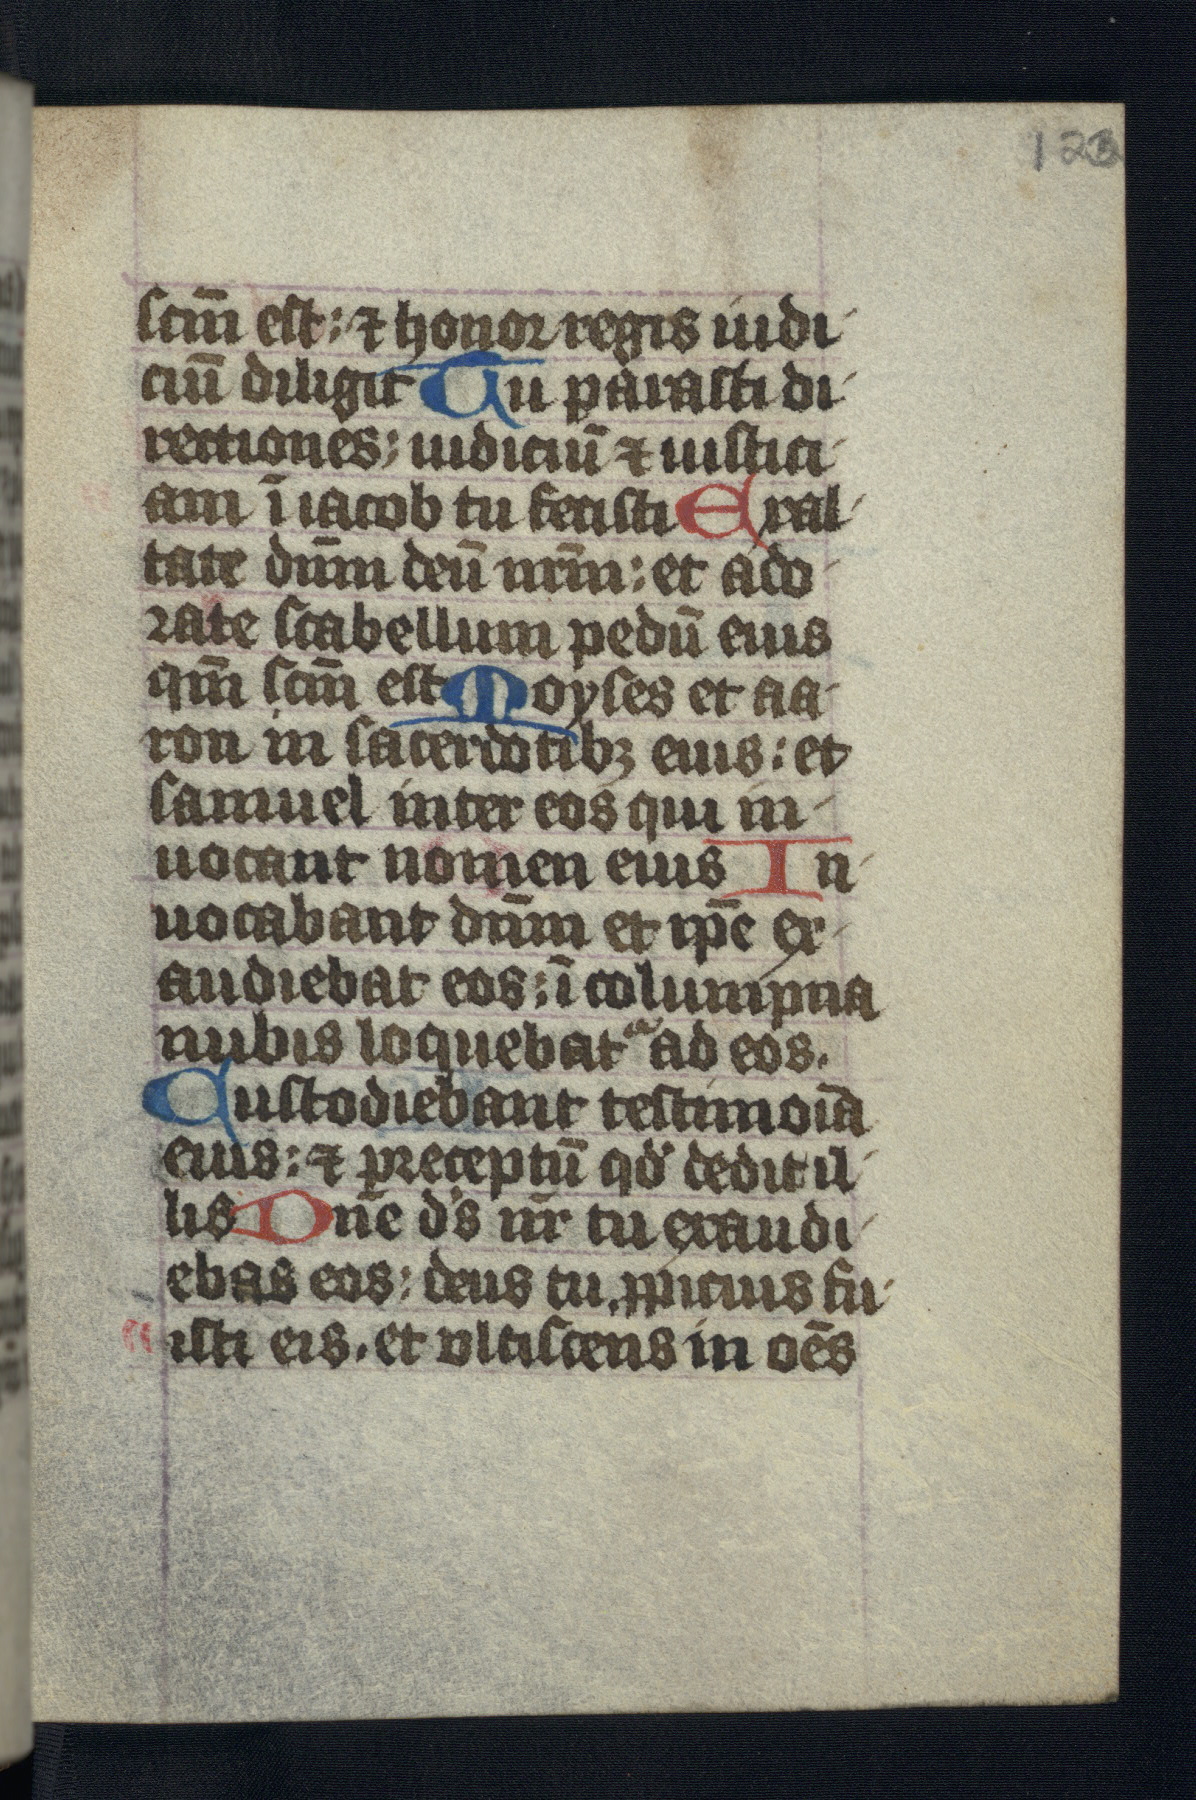 123
scm̄ est: ⁊ honor regis iudi-
ciū diligit Tu parasti di-
rectiones: iudiciū ⁊ iustici-
am ī iacob tu fecisti Exal-
tate dn̄m deū nr̄m: et ado-
rate scabellum pedū eius
qm̄ scm̄ est Moyses et aa-
ron in sacerdotibꝫ eius: et
samuel inter eos qui in-
uocant nomen eius In-
uocabant dn̄m et ip̄e ex-
audiebat eos: ī columpna
nubis loquebat᷑ ad eos.
Custodiebant testimoīa
eius: ⁊ preceptū qd̓ dedit il-
lis Dn̄e d̓s nr̄ tu exaudi-
ebas eos: deus tu ꝓpicius fu-
isti eis. et vlciscens in oēs